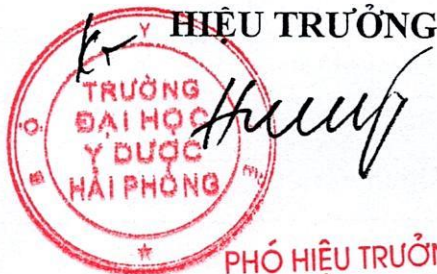 HIỆU TRƯỞNG
BỘ Y TẾ
TRƯỜNG
ĐẠI HỌC
Y DƯỢC
HẢI PHÒNG
PHÓ HIỆU TRƯỞN